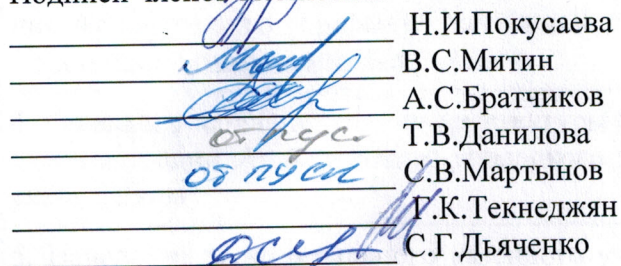 Подписи членов
Н.И.Покусаева
В.С.Митин
А.С.Братчиков
отпус Т.В.Данилова
отпуск С.В.Мартынов
Г.К.Текнеджян
С.Г.Дьяченко